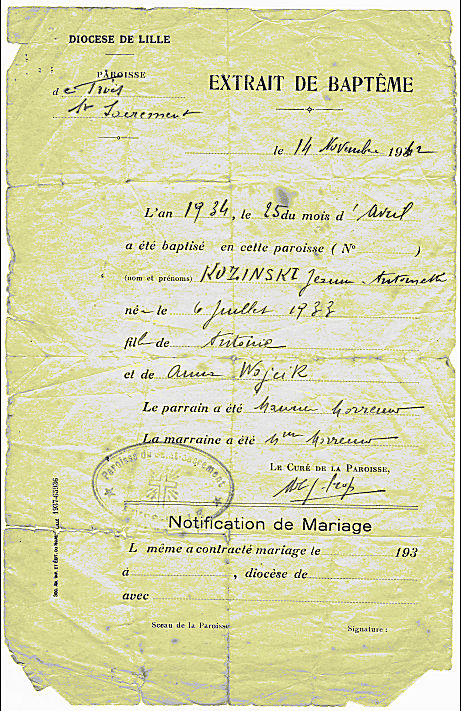 DIOCESE DE LILLE
PAROISSE
de Très
St Sacrement
EXTRAIT DE BAPTÊME
le 14 Novembre 1942
L'an 1934, le 25 du mois d' Avril
a été baptisé en cette paroisse (No )
(nom et prénoms) KOZINSKI Jeanne-Antoinette
née le 6 Juillet 1933
fille de Antoine
et de Anna Wojcik
Le parrain a été
La marraine a été Mme
LE CURÉ DE LA PAROISSE,
Paroisse du Saint-Sacrement
Notification de Mariage
L même a contracté mariage le 193
à , diocèse de
avec
Sceau de la Paroisse Signature :